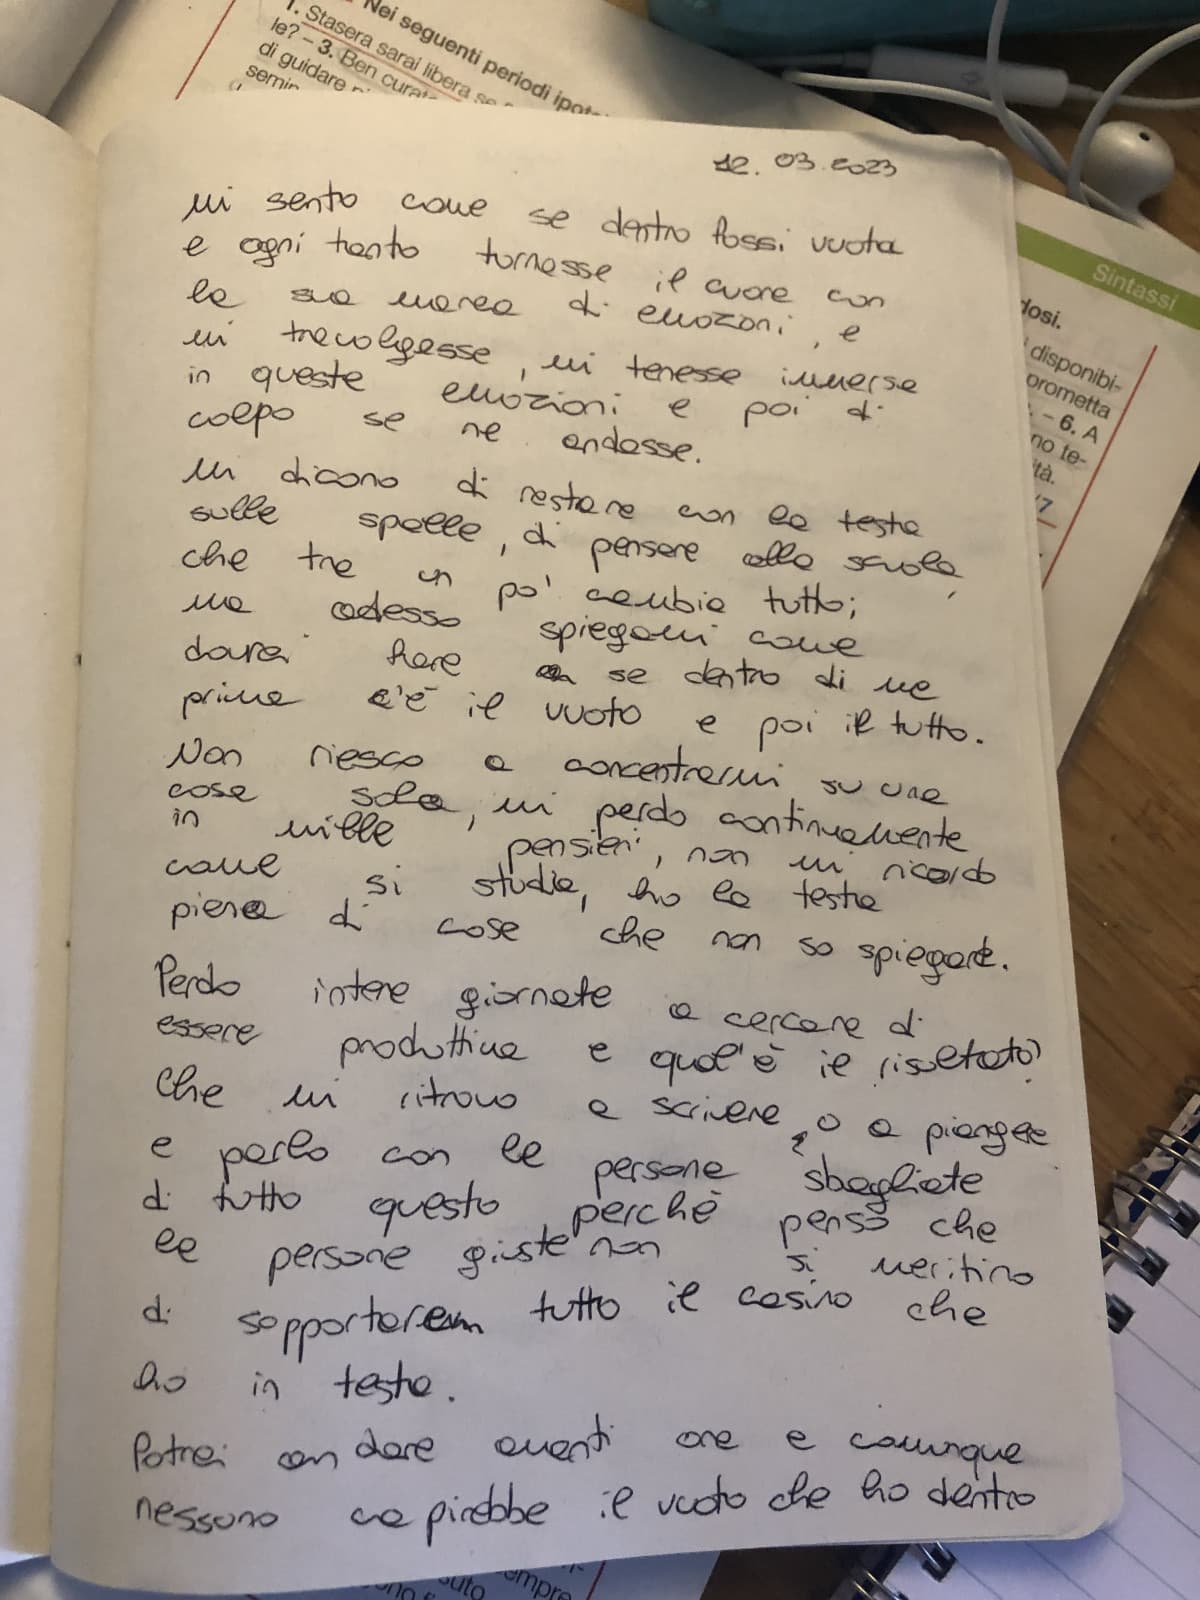 1. Nei seguenti periodi ipot
Stasera sarai libera se
le? – 3. Ben curat
di guidare
semin
12. 03. 2023
Mi sento come se dentro fossi vuota
e ogni tanto tornasse il cuore con
la sua marea di emozoni, e
mi travolgesse, mi tenesse immersa
in queste emozioni e poi di
colpo se ne andasse.
Mi dicono di restare con la testa
sulle spalle, di pensare alla scuola,
che tra un po' cambia tutto;
ma adesso spiegami come
dovrei fare se dentro di me
prima c'è il vuoto e poi il tutto.
Non riesco a concentrarmi su una
cosa sola, mi perdo continuamente
in mille pensieri, non mi ricordo
come si studia, ho la testa
piena di cose che non so spiegare.
Perdo intere giornate a cercare di
essere produttiva e qual'è il risultato?
Che mi ritrovo a scrivere, o a piangere
e parlo con le persone sbagliate
di tutto questo perchè penso che
le persone giuste non si meritino
di sopportare tutto il casino che
ho in testa.
Potrei andare avanti ore e comunque
nessuno capirebbe il vuoto che ho dentro
Sintassi
dosi.
i disponibi-
orometta
. – 6. A
no te-
ità.
/7
empre